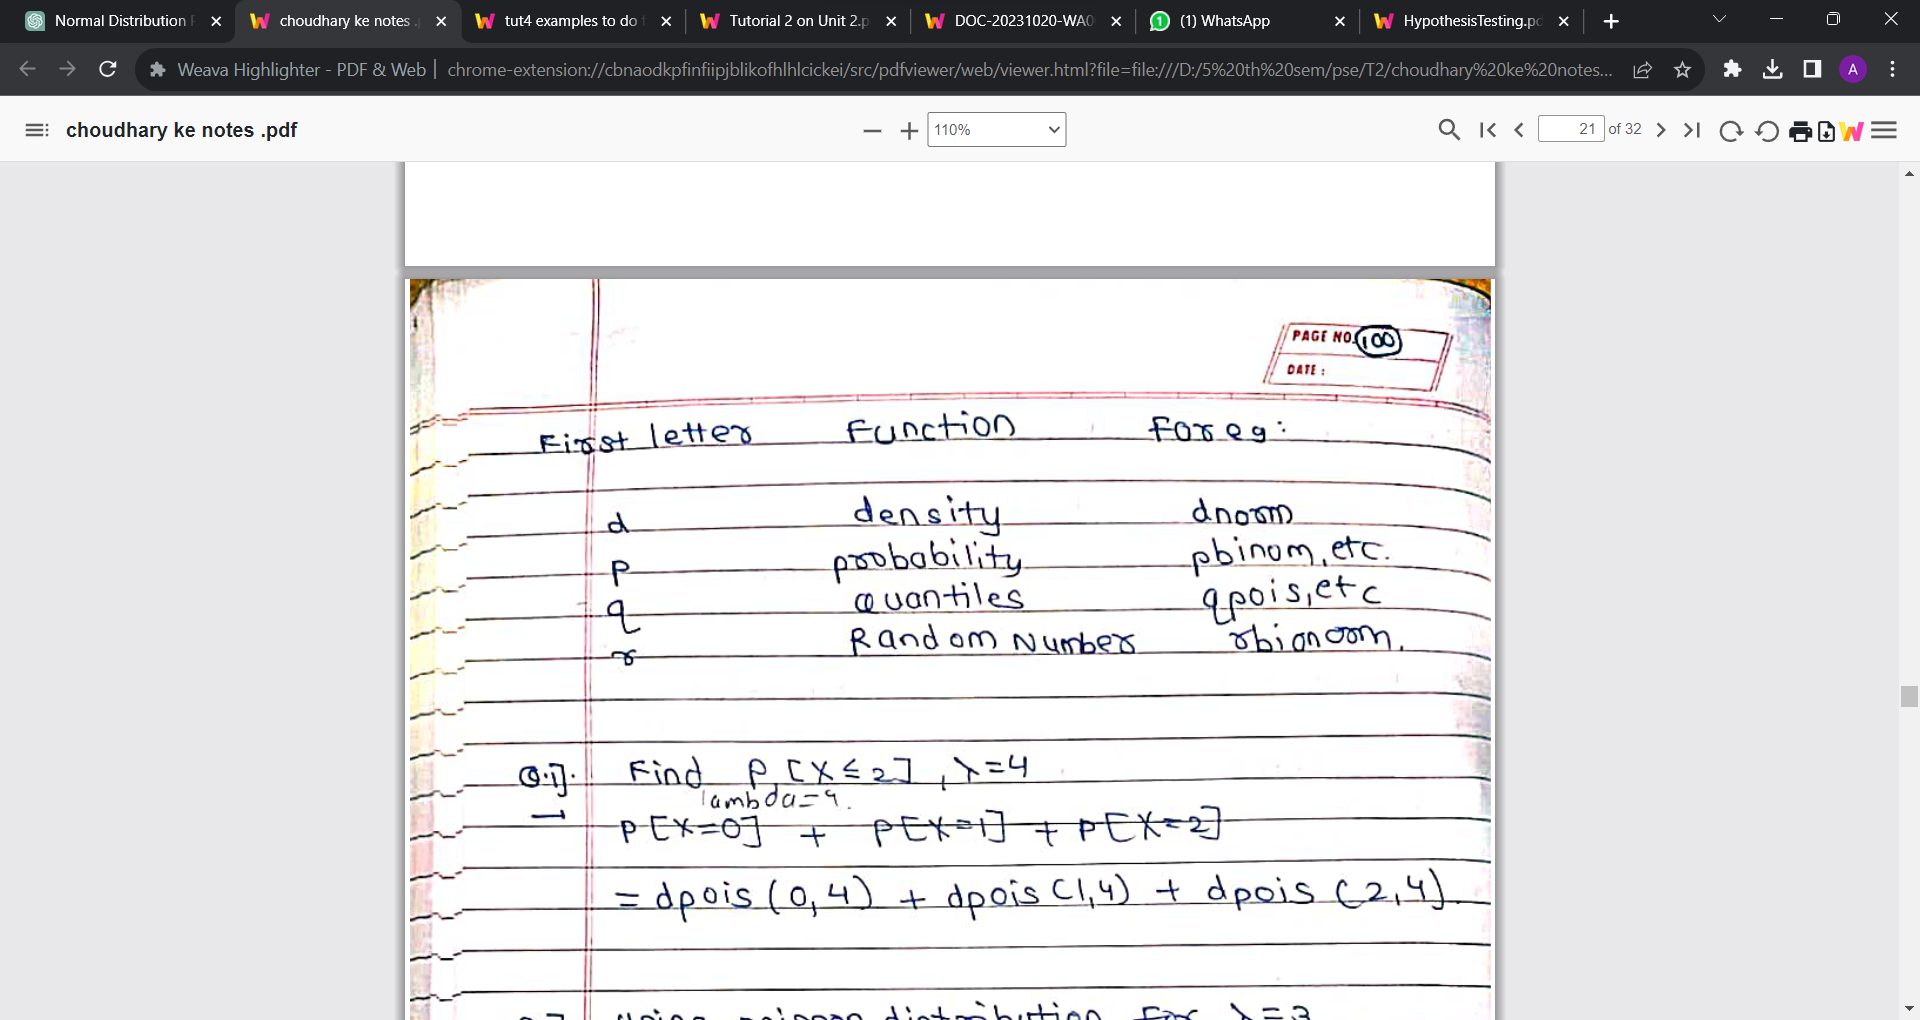 Normal Distribution
choudhary ke notes .
tut4 examples to do
Tutorial 2 on Unit 2.p
DOC-20231020-WA0
(1) WhatsApp
HypothesisTesting.p
Weava Highlighter - PDF & Web
chrome-extension://cbnaodkpfinfiipjblikofhlhlcickei/src/pdfviewer/web/viewer.html?file=file:///D:/5%20th%20sem/pse/T2/choudhary%20ke%20notes...
A
choudhary ke notes .pdf
110%
21 of 32
PAGE NO. 100
DATE :
First letter Function For eg:
d density dnorm
p probability pbinom, etc.
q Quantiles qpois, etc
r Random Number rbionorm.
Q.1]. Find P[X≤2], λ=4
lambda=4.
→ P[X=0] + P[X=1] + P[X=2]
= dpois (0,4) + dpois (1,4) + dpois (2,4).
Using poisson distribution for λ=3